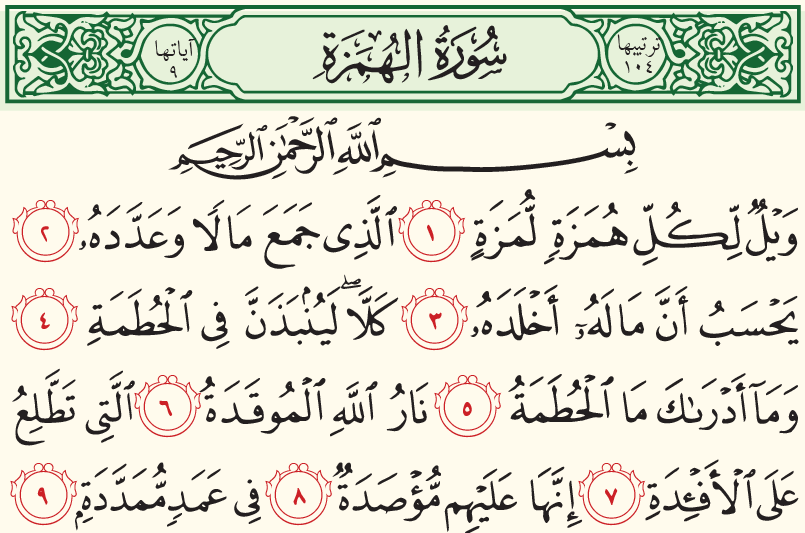 ترتيبها ١٠٤ سُورَةُ الهُمَزَةِ آياتها ٩
بِسْمِ اللَّهِ الرَّحْمَٰنِ الرَّحِيمِ
وَيْلٌ لِّكُلِّ هُمَزَةٍ لُّمَزَةٍ ١ ٱلَّذِى جَمَعَ مَالًا وَعَدَّدَهُۥ ٢
يَحْسَبُ أَنَّ مَالَهُۥٓ أَخْلَدَهُۥ ٣ كَلَّا ۖ لَيُنۢبَذَنَّ فِى ٱلْحُطَمَةِ ٤
وَمَآ أَدْرَىٰكَ مَا ٱلْحُطَمَةُ ٥ نَارُ ٱللَّهِ ٱلْمُوقَدَةُ ٦ ٱلَّتِى تَطَّلِعُ
عَلَى ٱلْأَفْـِٔدَةِ ٧ إِنَّهَا عَلَيْهِم مُّؤْصَدَةٌ ٨ فِى عَمَدٍ مُّمَدَّدَةٍۭ ٩